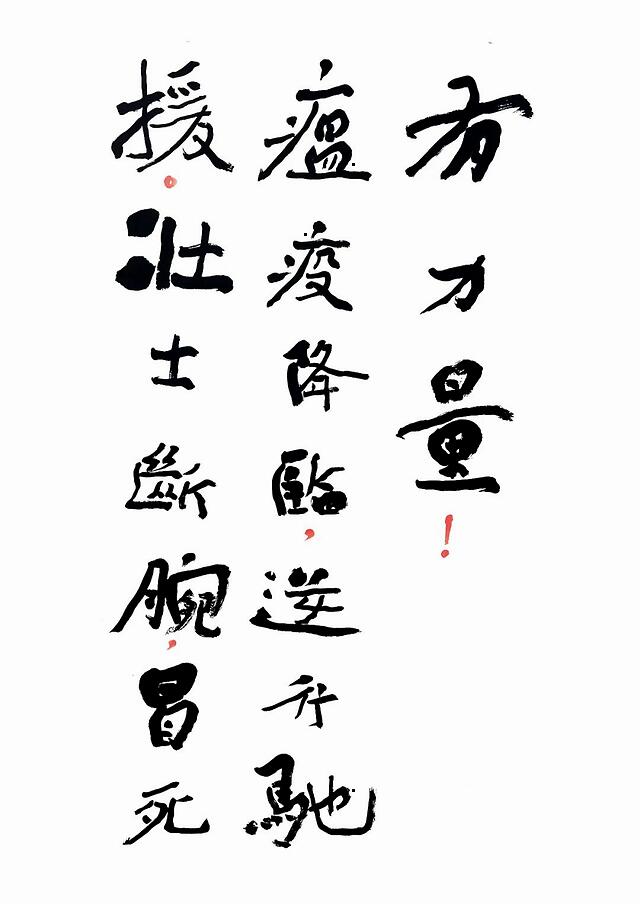 有力量！
瘟疫降臨，逆行馳
援。壯士斷腕，冒死